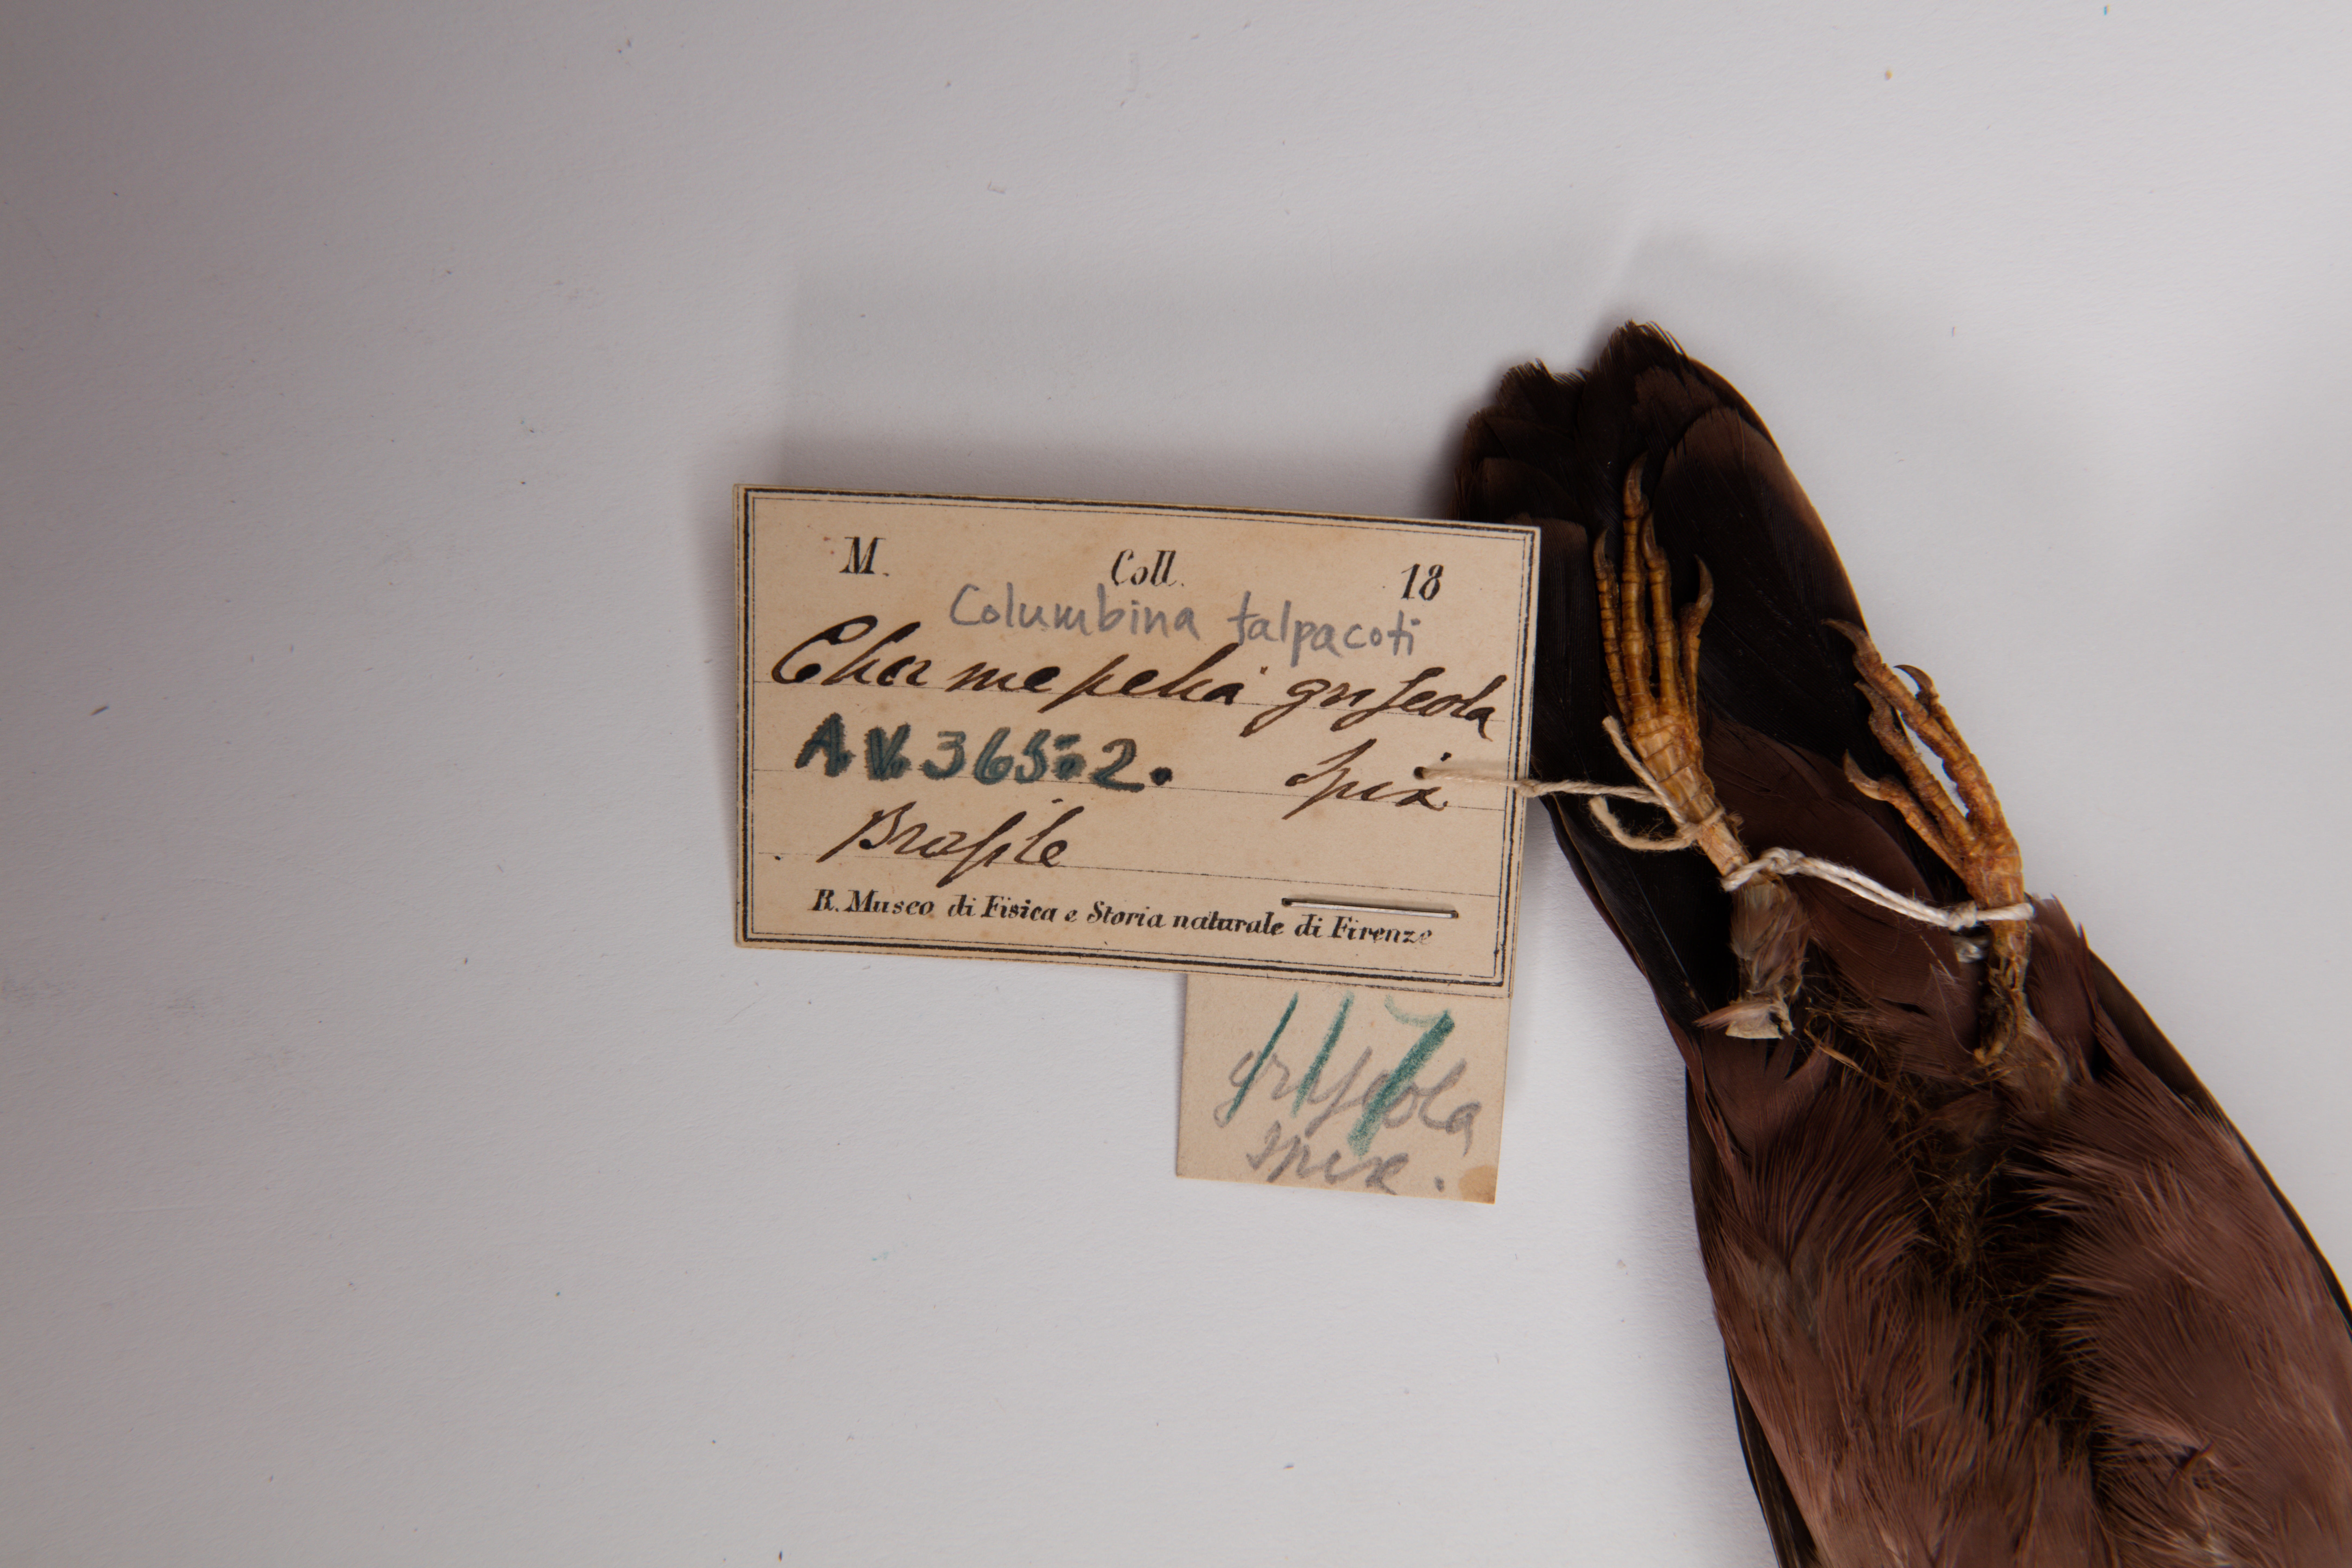 M. Coll. 18
Columbina talpacoti
Chamepelia griseola
A.V. 365-2. Spix
Brasile
R. Museo di Fisica e Storia naturale di Firenze
117
griseola
Spix.